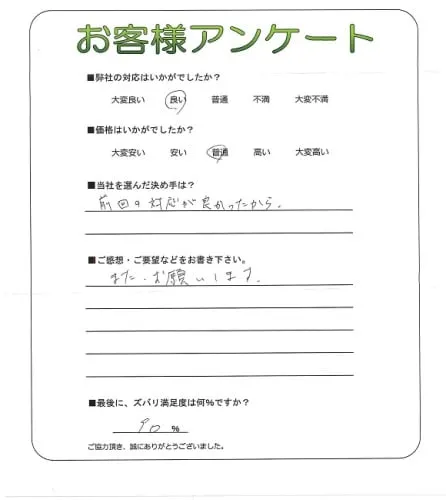 お客様アンケート
■弊社の対応はいかがでしたか？
大変良い 良い 普通 不満 大変不満
■価格はいかがでしたか？
大変安い 安い 普通 高い 大変高い
■当社を選んだ決め手は？
前回の対応が良かったから。
■ご感想・ご要望などをお書き下さい。
また、お願いします。
■最後に、ズバリ満足度は何％ですか？
90 ％
ご協力頂き、誠にありがとうございました。